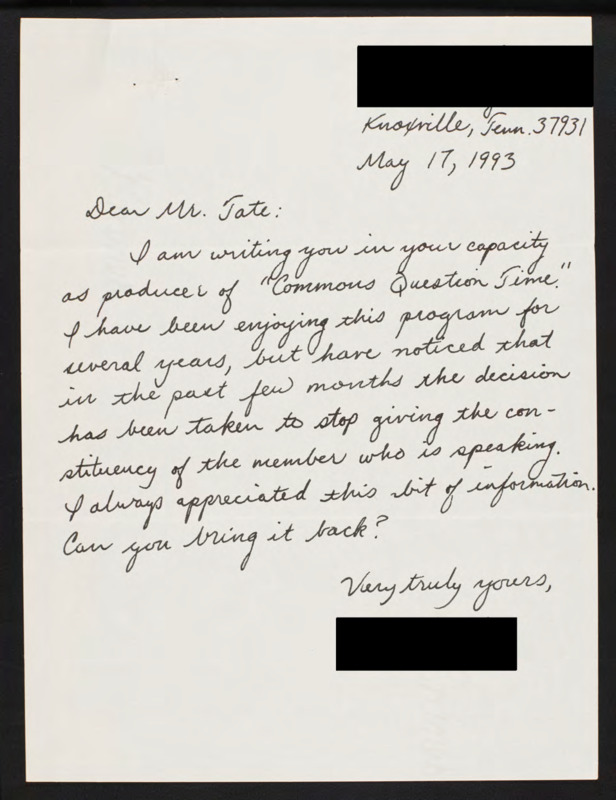 Knoxville, Tenn. 37931
May 17, 1993
Dear Mr. Tate:
I am writing you in your capacity
as producer of "Commons Question Time."
I have been enjoying this program for
several years, but have noticed that
in the past few months the decision
has been taken to stop giving the con-
stituency of the member who is speaking.
I always appreciated this bit of information.
Can you bring it back?
Very truly yours,